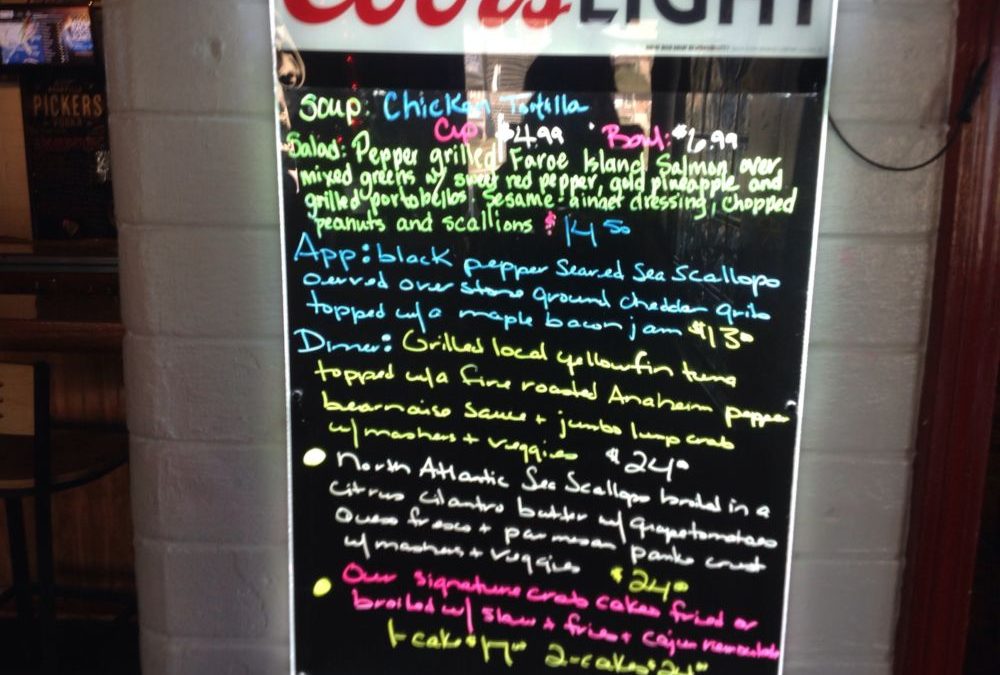 Coors LIGHT
PICKERS
VODKA
Soup: Chicken Tortilla
Cup $4.99 Bowl: $6.99
Salad: Pepper grilled Faroe Island Salmon over
mixed greens w/ sweet red pepper, gold pineapple and
grilled portabellos. Sesame-ginger dressing, chopped
peanuts and scallions $14.50
App: black pepper Seared Sea Scallops
served over stone ground cheddar grits
topped w/a maple bacon jam $13.00
Dinner: Grilled local yellowfin tuna
topped w/a fire roasted Anaheim pepper
bearnaise sauce + jumbo lump crab
w/ mashers + veggies $24.00
North Atlantic Sea Scallops broiled in a
citrus cilantro butter w/ grape tomatoes
Queso fresco + parmesan panko crust
w/ mashers + veggies $24.00
Our signature crab cakes fried or
broiled w/ slaw + fries + cajun remoulade
1-cake $17.00 2-cakes $24.00